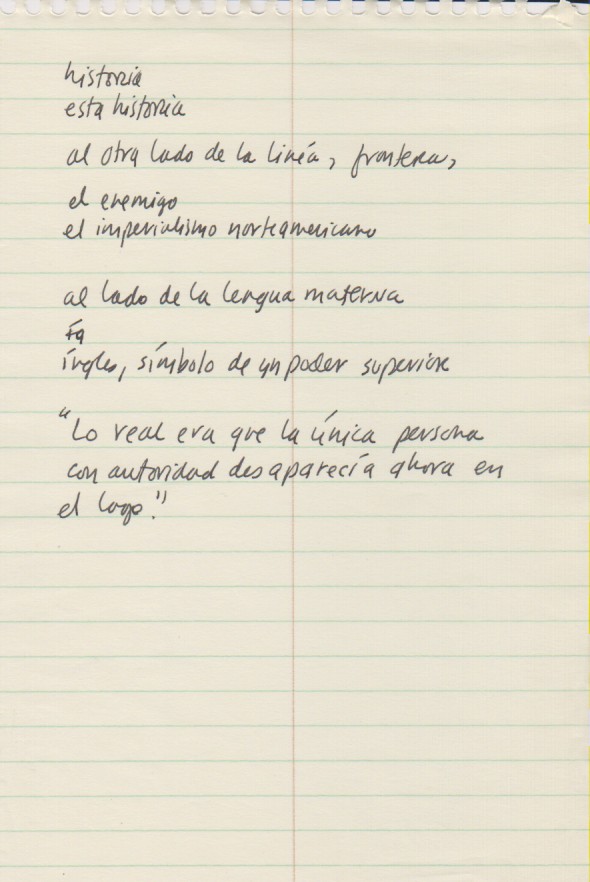 historia
esta historia
al otra lado de la linéa, frontera,
el enemigo
el imperialismo norteamericano
al lado de la lengua materna
íngles, símbolo de un poder superior
"Lo real era que la única persona
con autoridad desaparecía ahora en
el lago."